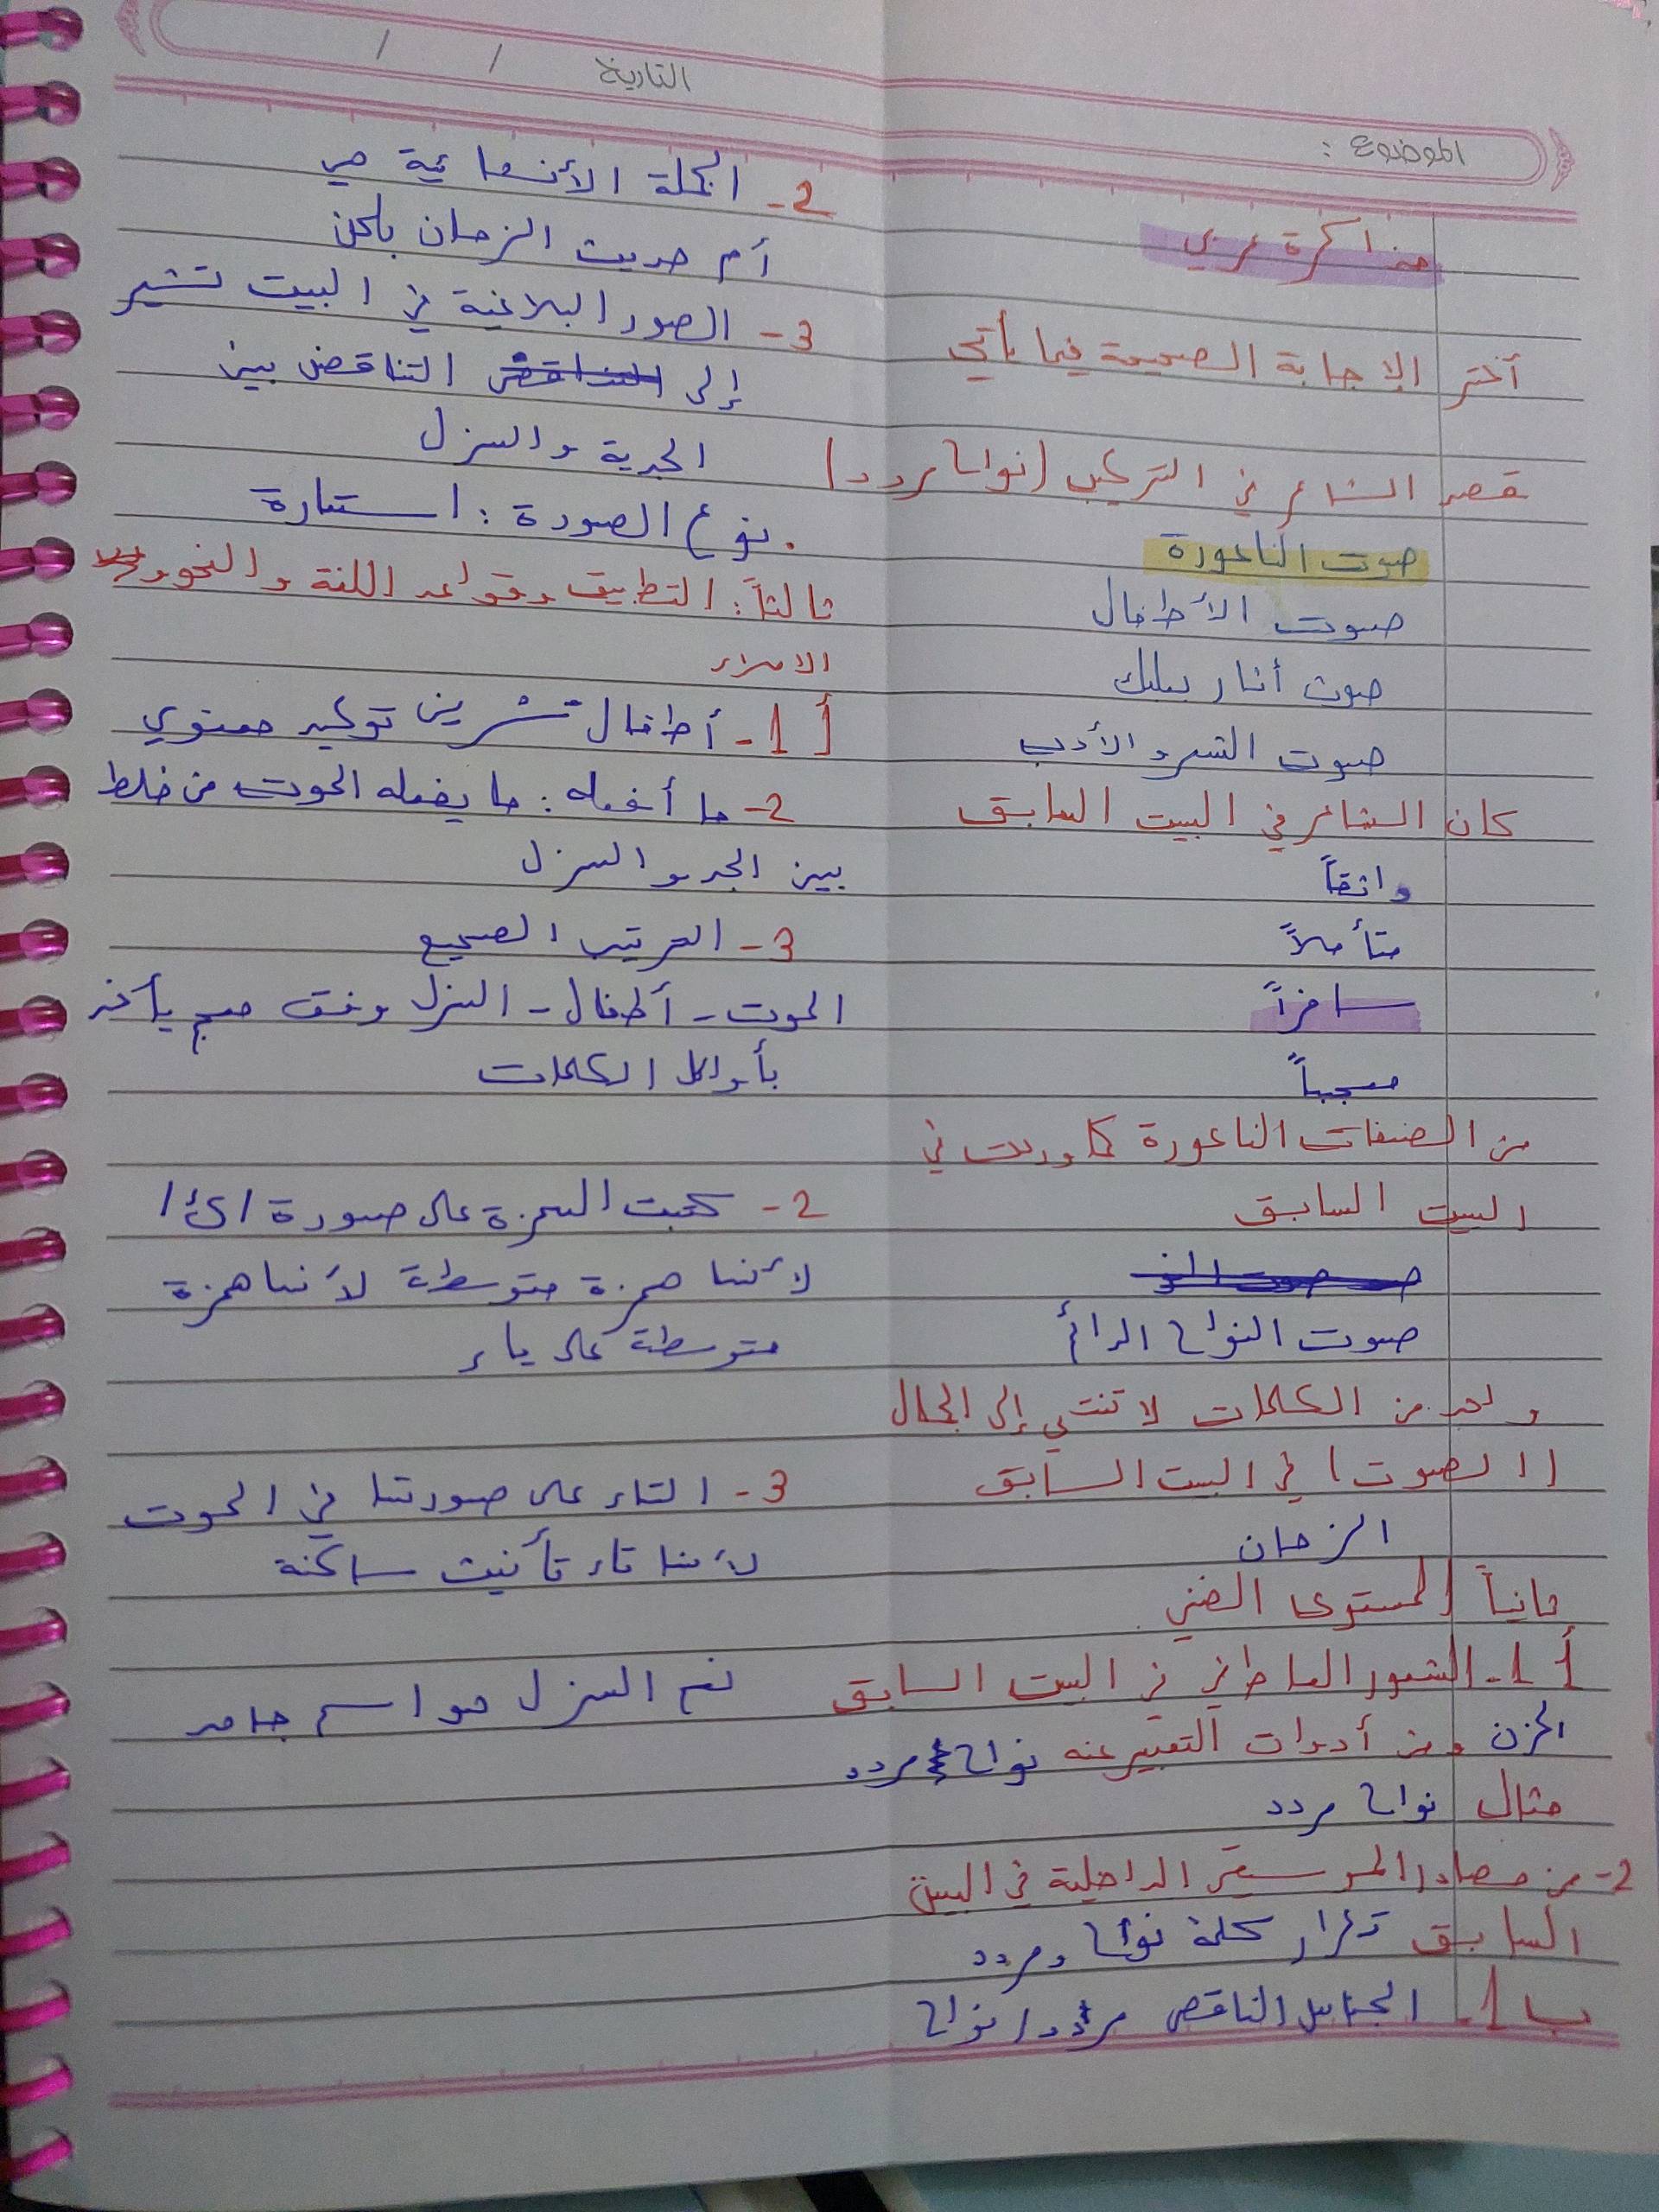 الموضوع :
التاريخ / /
مذاكرة عربي
أختر الإجابة الصحيحة فيما يأتي
قصد الشاعر في التركيب (نواح مردد)
صوت الناعورة
صوت الأطفال
صوت أنار ببلبك
صوت الشعر و الأدب
كان الشاعر في البيت السابق
واثقاً
متأملاً
ساخراً
معجباً
من الصفات الناعورة كما وردت في
البيت السابق
صوت النواح الدائم
واحد من الكلمات لا تنتمي إلى المجال
(الصوت) في البيت السابق
الزمان
ثانياً المستوى الفني
أ 1- الشعور العاطفي في البيت السابق
الحزن ومن أدوات التعبير عنه نواح مردد
مثال نواح مردد
2- من مصادر الموسيقى الداخلية في البيت
السابق تكرار كلمة نواح ومردد
ب 1. الجناس الناقص مردد / نواح
2- الجملة الأنشائية هي
أم حديث الزمان بلحن
3- الصور البلاغية في البيت تشير
إلى التناقض التناقض بين
الجدية والهزل
. نوع الصورة : استعارة
ثالثاً: التطبيق وقواعد اللغة والنحو
الاملاء
أ 1- أطفال تشرين توكيد معنوي
2- ما أفعله : ما يفعله الموت من خلط
بين الجد والهزل
3- الترتيب الصحيح
الموت - أطفال - الهزل وفق معجم يأخذ
بأوائل الكلمات
2- كتبت الهمزة على صورة /ئ/
لأنها همزة متوسطة لأنها همزة
متوسطة على ياء
3- التاء على صورتها في الموت
لأنها تاء تأنيث ساكنة
نعم الهزل هو اسم جامد